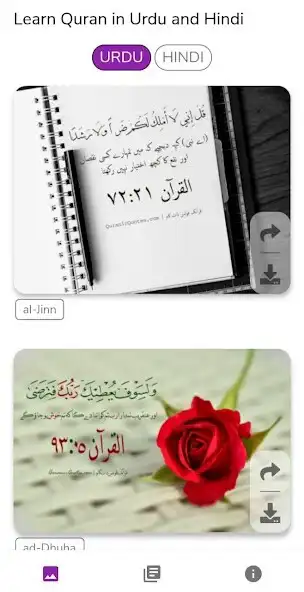 Learn Quran in Urdu and Hindi
URDU
HINDI
قُلْ إِنِّي لَا أَمْلِكُ لَكُمْ ضَرًّا وَلَا رَشَدًا
(اے نبی) کہہ دیجیے کہ میں تمہارے کسی نقصان
اور نفع کا کچھ اختیار نہیں رکھتا
القرآن ۷۲:۲۱
al-Jinn
وَلَسَوْفَ يُعْطِيكَ رَبُّكَ فَتَرْضَىٰ
القرآن ۹۳:۰۵
ad-Dhuha